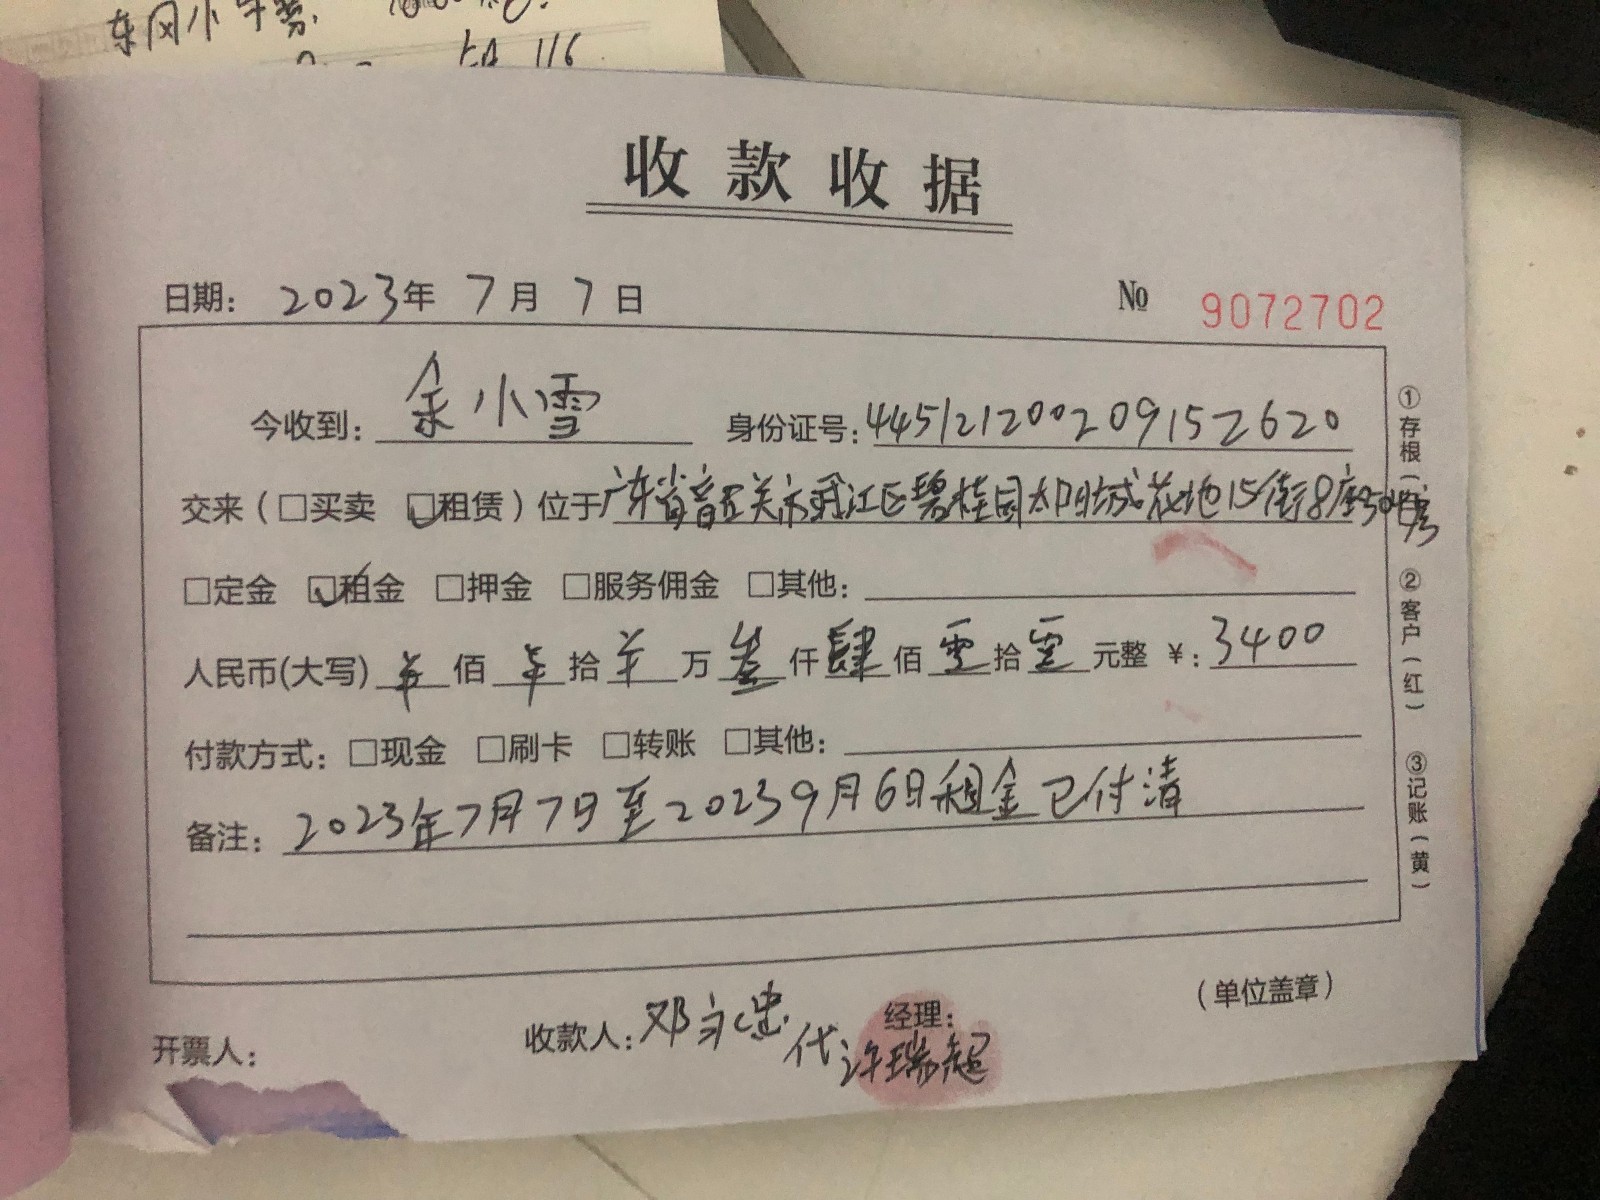 东风小
116
收款收据
日期: 2023年 7月 7日 № 9072702
今收到: 余小雪 身份证号: 445121200209152620
交来(□买卖 ☑租赁)位于广东省韶关市武江区碧桂园太阳城花地15街8座504房
□定金 ☑租金 □押金 □服务佣金 □其他:
人民币(大写) 佰 拾 万 叁仟肆佰零拾零元整 ¥: 3400
付款方式: □现金 □刷卡 □转账 □其他:
备注: 2023年7月7日至2023 9月6日租金已付清
①存根(
②客户(红)
③记账(黄)
(单位盖章)
开票人: 收款人: 邓永忠 经理:
代许瑞超